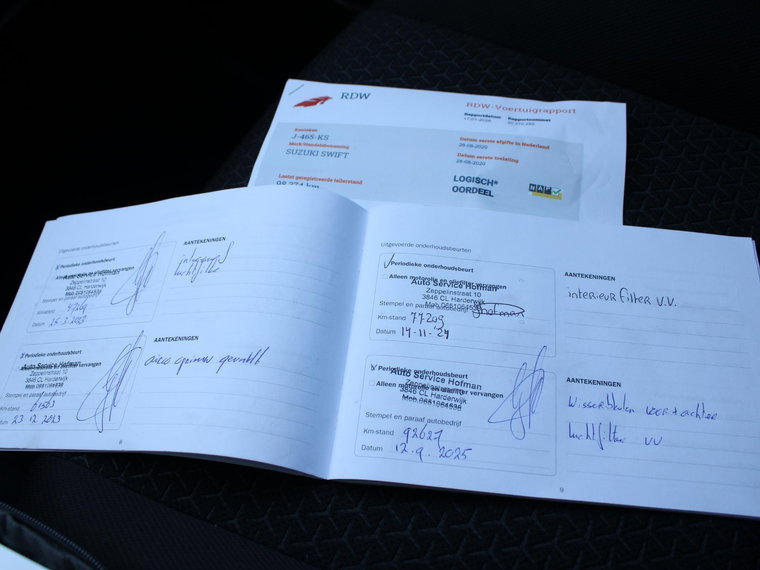 RDW
RDW-Voertuigrapport
Rapportdatum
Rapportnummer
Kenteken
J-465-KS
Merk/Handelsbenaming
SUZUKI SWIFT
Laatst geregistreerde tellerstand
98.374 km
Datum eerste afgifte in Nederland
28-08-2020
Datum eerste toelating
28-08-2020
LOGISCH*
OORDEEL
NAP
Uitgevoerde onderhoudsbeurten
Periodieke onderhoudsbeurt
Alleen motorolie en oliefilter vervangen
Auto Service Hofman
Zeppelinstraat 10
3846 CL Harderwijk
Stempel en paraaf autobedrijf
Km-stand
Datum
AANTEKENINGEN
luchtfilter
Periodieke onderhoudsbeurt
Alleen motorolie en oliefilter vervangen
Auto Service Hofman
Zeppelinstraat 10
3846 CL Harderwijk
Mob. 0681084538
Stempel en paraaf autobedrijf
Km-stand
Datum 23 12 2023
AANTEKENINGEN
8
Uitgevoerde onderhoudsbeurten
Periodieke onderhoudsbeurt
Alleen motorolie en oliefilter vervangen
Auto Service Hofman
Zeppelinstraat 10
3846 CL Harderwijk
Stempel en paraaf autobedrijf
Km-stand 77209
Datum 14-11-'24
AANTEKENINGEN
interieurfilter v.v.
Periodieke onderhoudsbeurt
Alleen motorolie en oliefilter vervangen
Auto Service Hofman
Zeppelinstraat 10
3846 CL Harderwijk
Mob. 0681084538
Stempel en paraaf autobedrijf
Km-stand 92627
Datum 12.9.2025
AANTEKENINGEN
wisserbladen voor + achter
luchtfilter vv
9